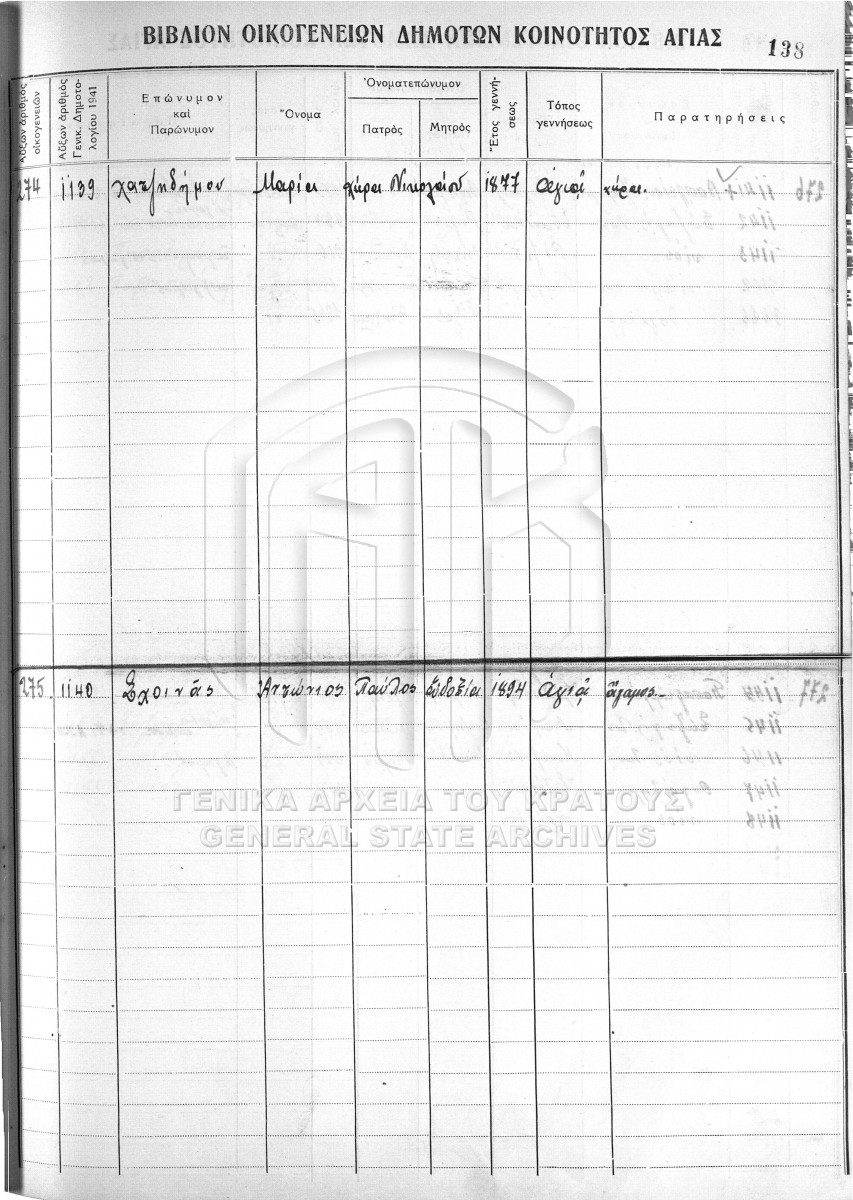 ΒΙΒΛΙΟΝ ΟΙΚΟΓΕΝΕΙΩΝ ΔΗΜΟΤΩΝ ΚΟΙΝΟΤΗΤΟΣ ΑΓΙΑΣ
138
Αὔξων ἀριθμὸς οἰκογενειῶν
Αὔξων ἀριθμὸς Γενικ. Δημοτολογίου 1941
Ἐπώνυμον καὶ Παρώνυμον
Ὄνομα
Ὀνοματεπώνυμον
Πατρὸς
Μητρὸς
Ἔτος γεννήσεως
Τόπος γεννήσεως
Παρατηρήσεις
274 1139 Χατζηδήμου Μαρία χήρα Νικολάου 1877 Ἁγιᾷ χήρα.
275 1140 Σχοινᾶς Ἀντώνιος Παῦλος Εὐδοξία 1894 Ἁγιᾷ ἄγαμος.
ΓΕΝΙΚΑ ΑΡΧΕΙΑ ΤΟΥ ΚΡΑΤΟΥΣ
GENERAL STATE ARCHIVES